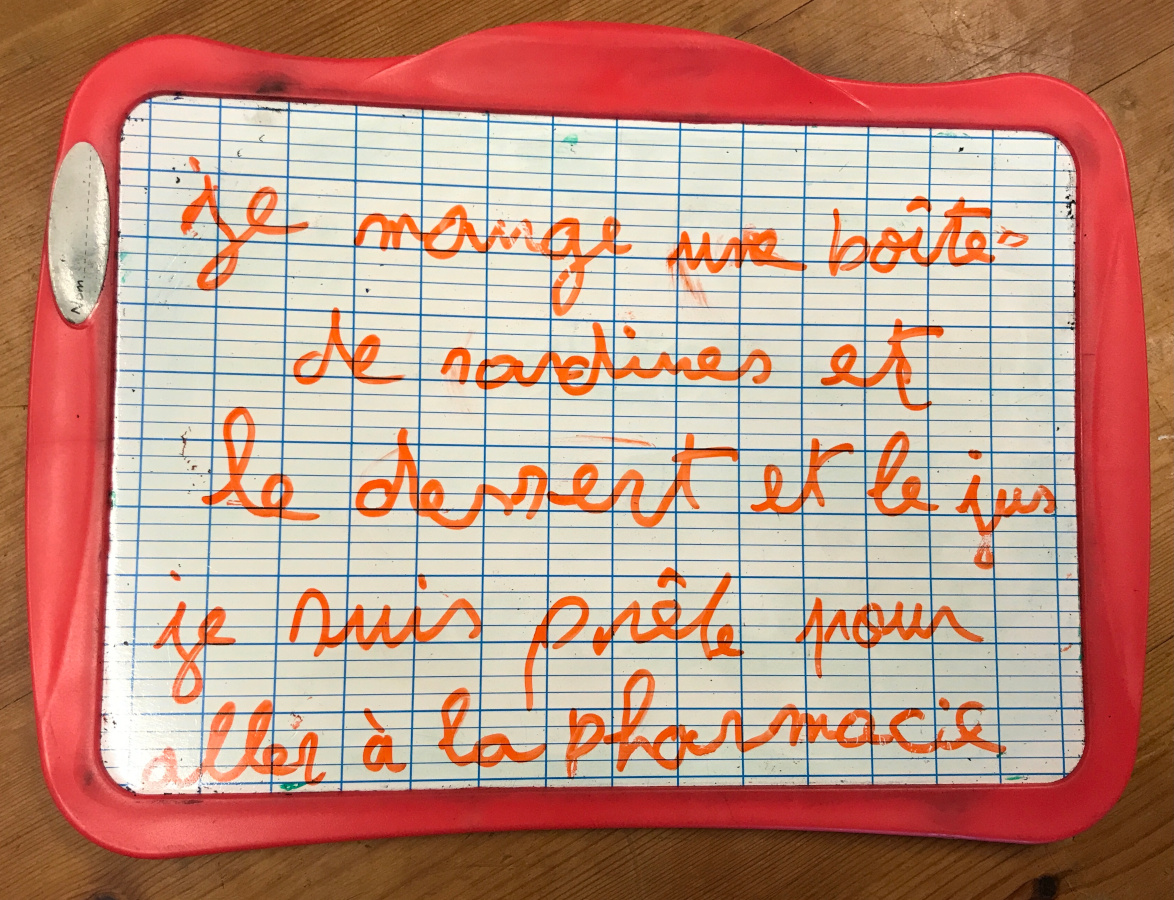 je mange une boîtes
de sardines et
le dessert et le jus
je suis prête pour
aller à la pharmacie
Nom